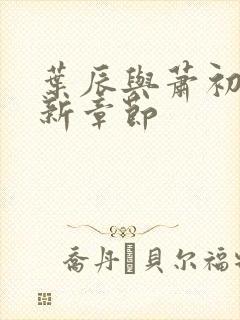 葉辰與蕭初
新章節
喬丹 貝尔福